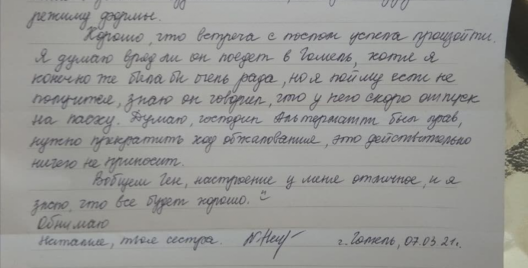 режиму формы.
Хорошо, что встреча с послом успела пройти.
Я думаю врядли он поедет в Гомель, хотя я
конечно же была бы очень рада, но я пойму если не
получится, знаю он говорил, что у него скоро отпуск
на пасху. Думаю, господин Альтерматт был прав,
нужно прекратить ход обжалования, это действительно
ничего не приносит.
Вобщем Ген, настроение у меня отличное, и я
знаю, что все будет хорошо.
Обнимаю
Наталья, твоя сестра. г. Гомель, 07.03.21г.